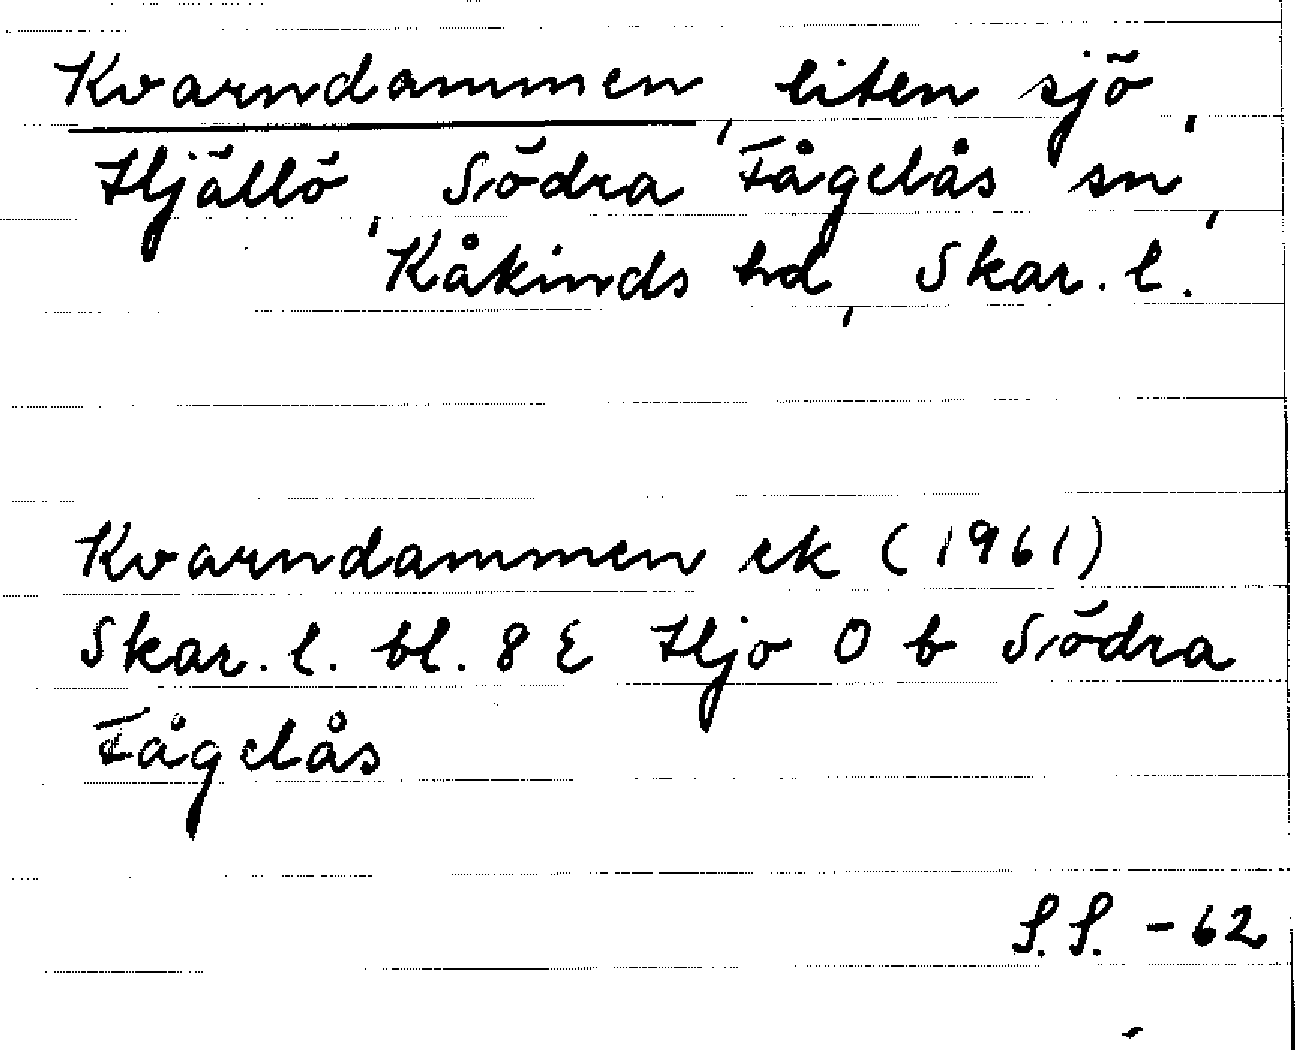 Kvarndammen, liten sjö,
Hjällö, Södra Fågelås sn,
Kåkinds hd, Skar. l.
Kvarndammen ek (1961)
Skar. l. bl. 8 E Hjo 0 b Södra
Fågelås
S.S. - 62